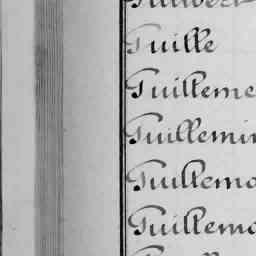 Guille
Guilleme
Guillemin
Guillemo
Guillemo